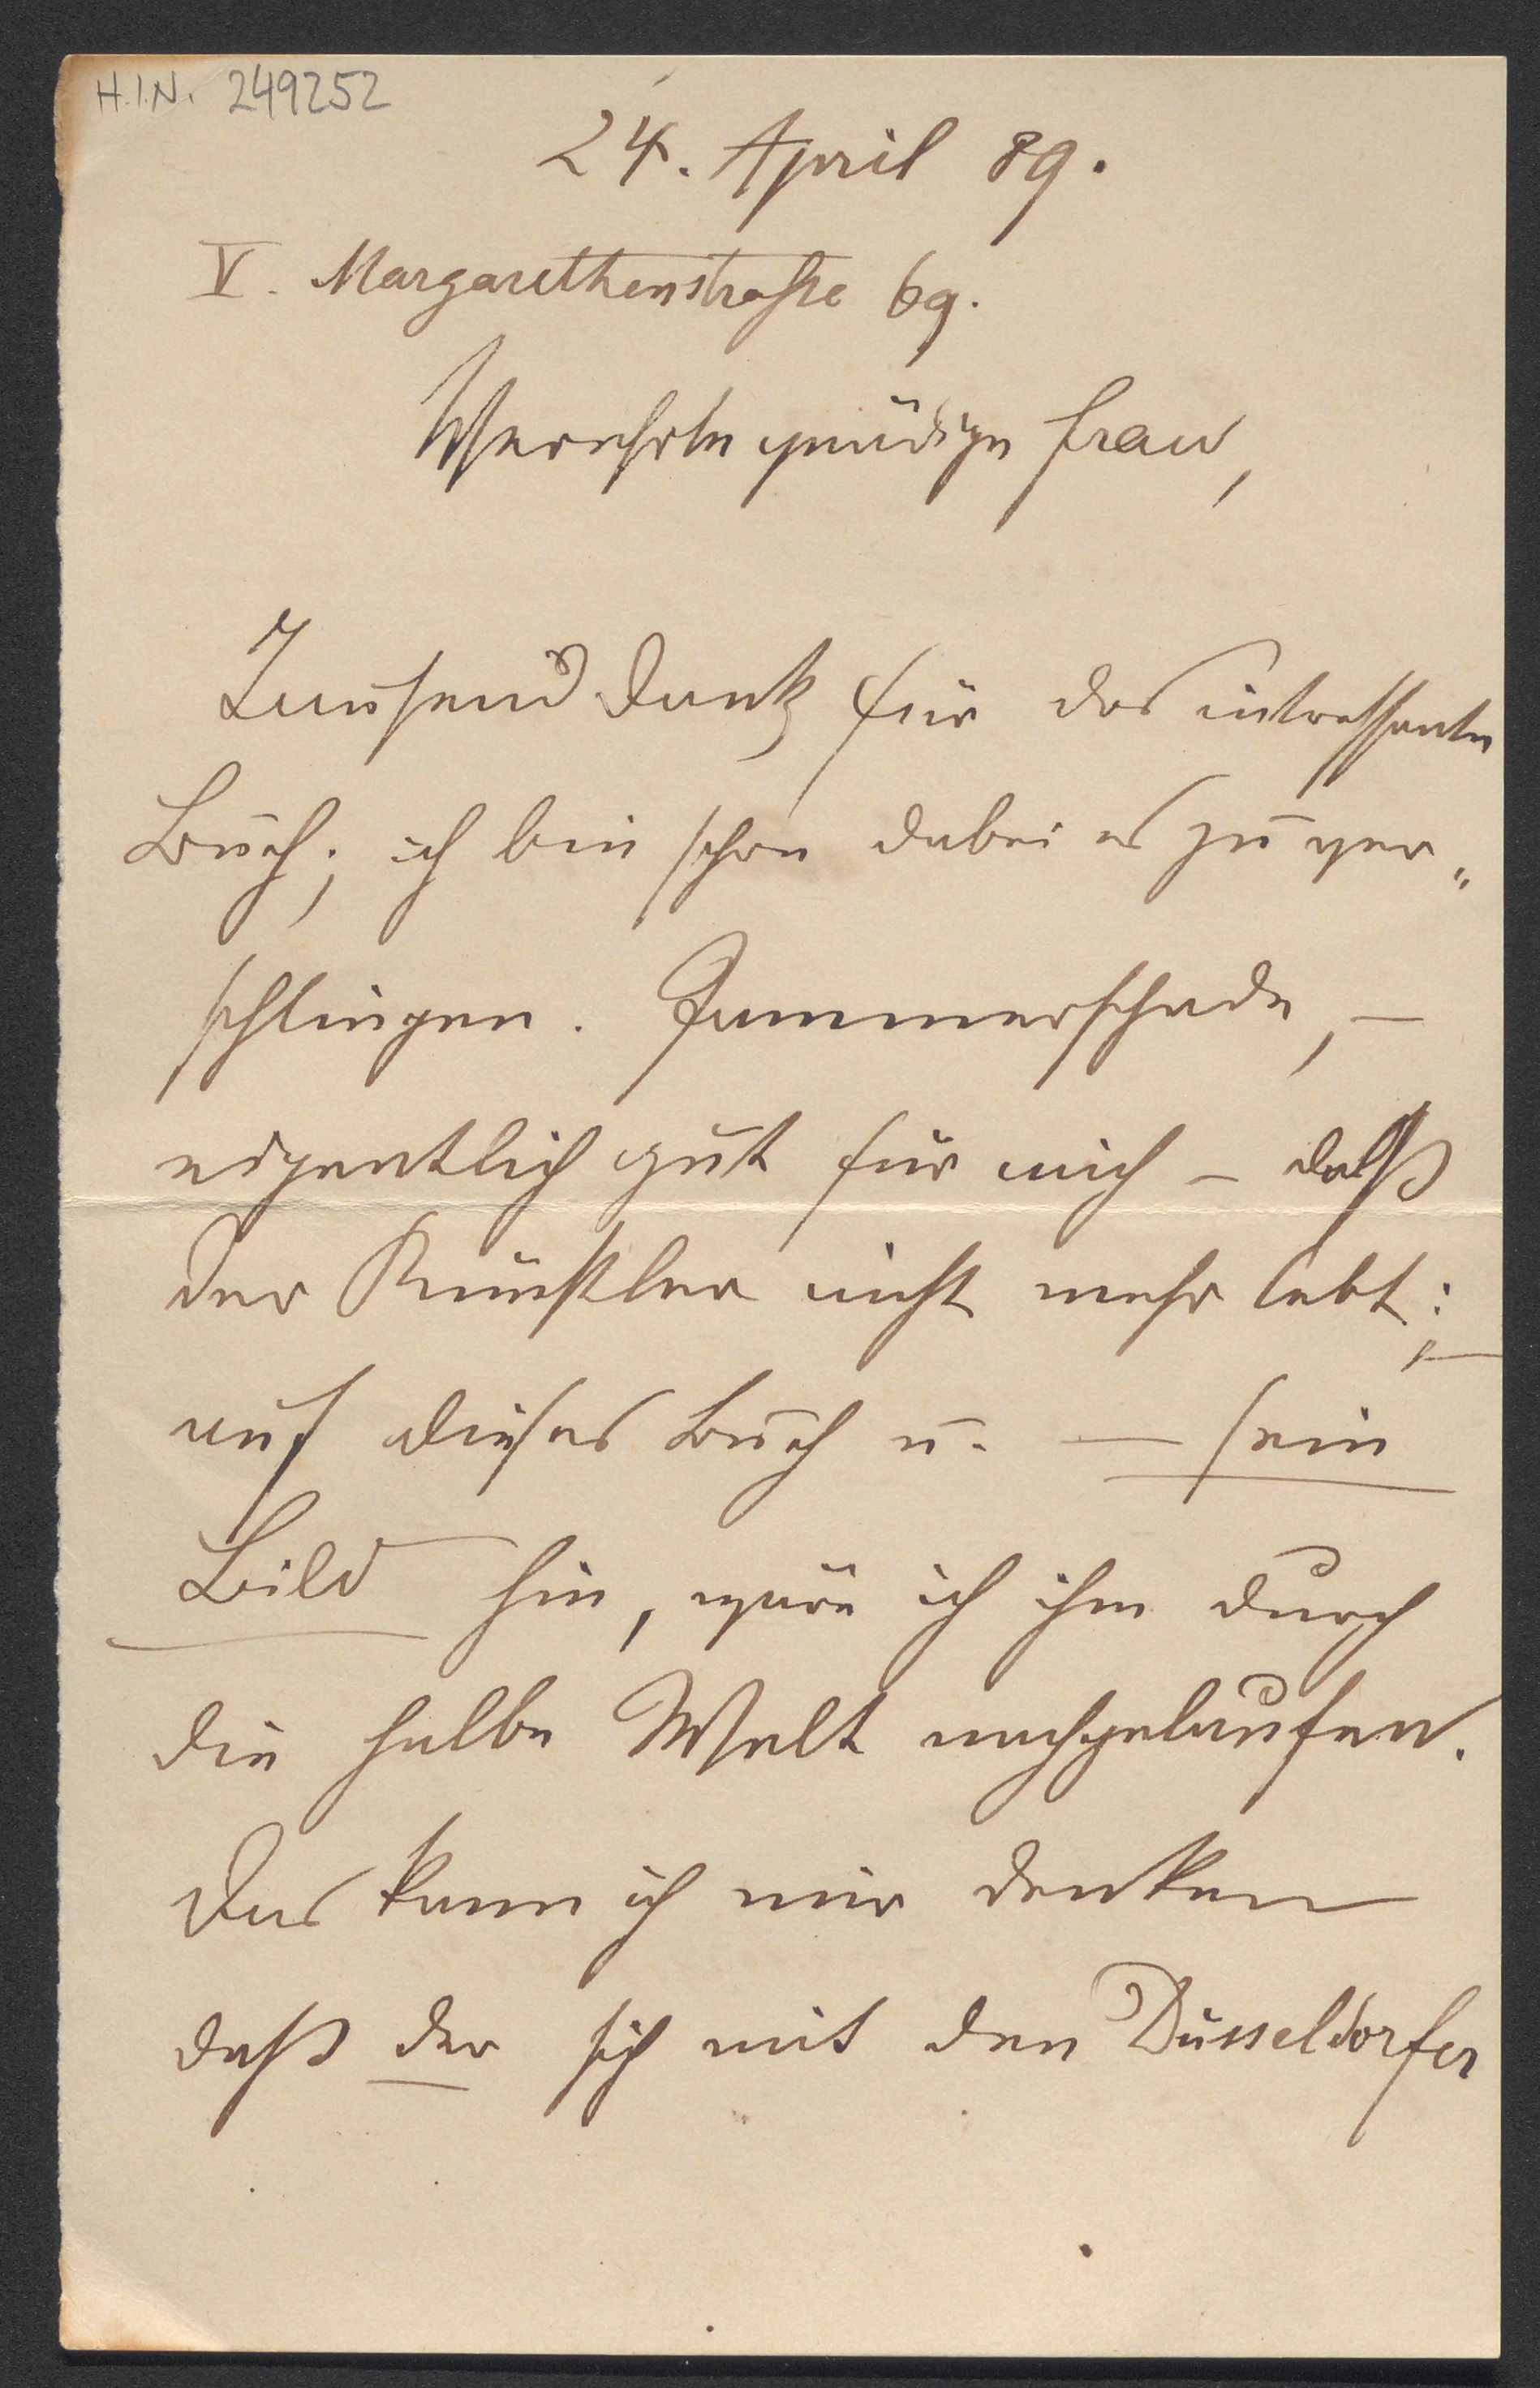 H.I.N. 249252
24. April 89.
V. Margarethenstraße 69.
Verehrte gnädige Frau,
Tausend Dank für das intressante
Buch; ich bin schon dabei es zu ver„
schlingen. Jammerschade, –
eigentlich gut für mich – daß
der Künstler nicht mehr lebt: –
auf dieses Buch u. – sein
Bild hin, wäre ich ihm durch
die halbe Welt nachgelaufen.
Das kann ich mir denken
daß der sich mit den Düsseldorfer